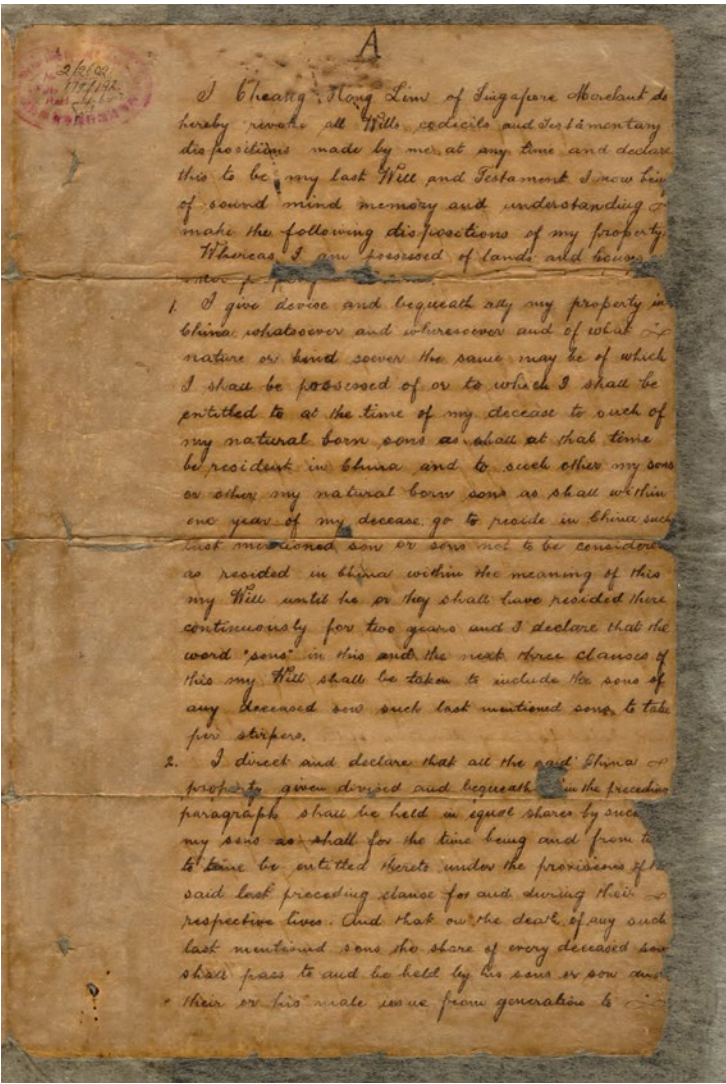 A
2/2/02
I Cheang Hong Lim of Singapore Merchant do
hereby revoke all Wills codicils and Testamentary
dispositions made by me at any time and declare
this to be my last Will and Testament I now being
of sound mind memory and understanding
make the following dispositions of my property.
Whereas I am possessed of lands and houses
1. I give devise and bequeath all my property in
China whatsoever and wheresoever and of what
nature or kind soever the same may be of which
I shall be possessed of or to which I shall be
entitled to at the time of my decease to such of
my natural born sons as shall at that time
be resident in China and to such other my sons
or other my natural born sons as shall within
one year of my decease go to reside in China such
last mentioned son or sons not to be considered
as resided in China within the meaning of this
my Will until he or they shall have resided there
continuously for two years and I declare that the
word "sons" in this and the next three clauses of
this my Will shall be taken to include the sons of
any deceased son such last mentioned sons to take
per stirpes.
2. I direct and declare that all the said China
property given divised and bequeath in the preceding
paragraph shall be held in equal shares by such
my sons as shall for the time being and from
to time be entitled thereto under the provisions of
said last preceding clause for and during their
respective lives. And that on the death of any such
last mentioned sons the share of every deceased son
shall pass to and be held by his sons or son and
their or his male issue from generation to